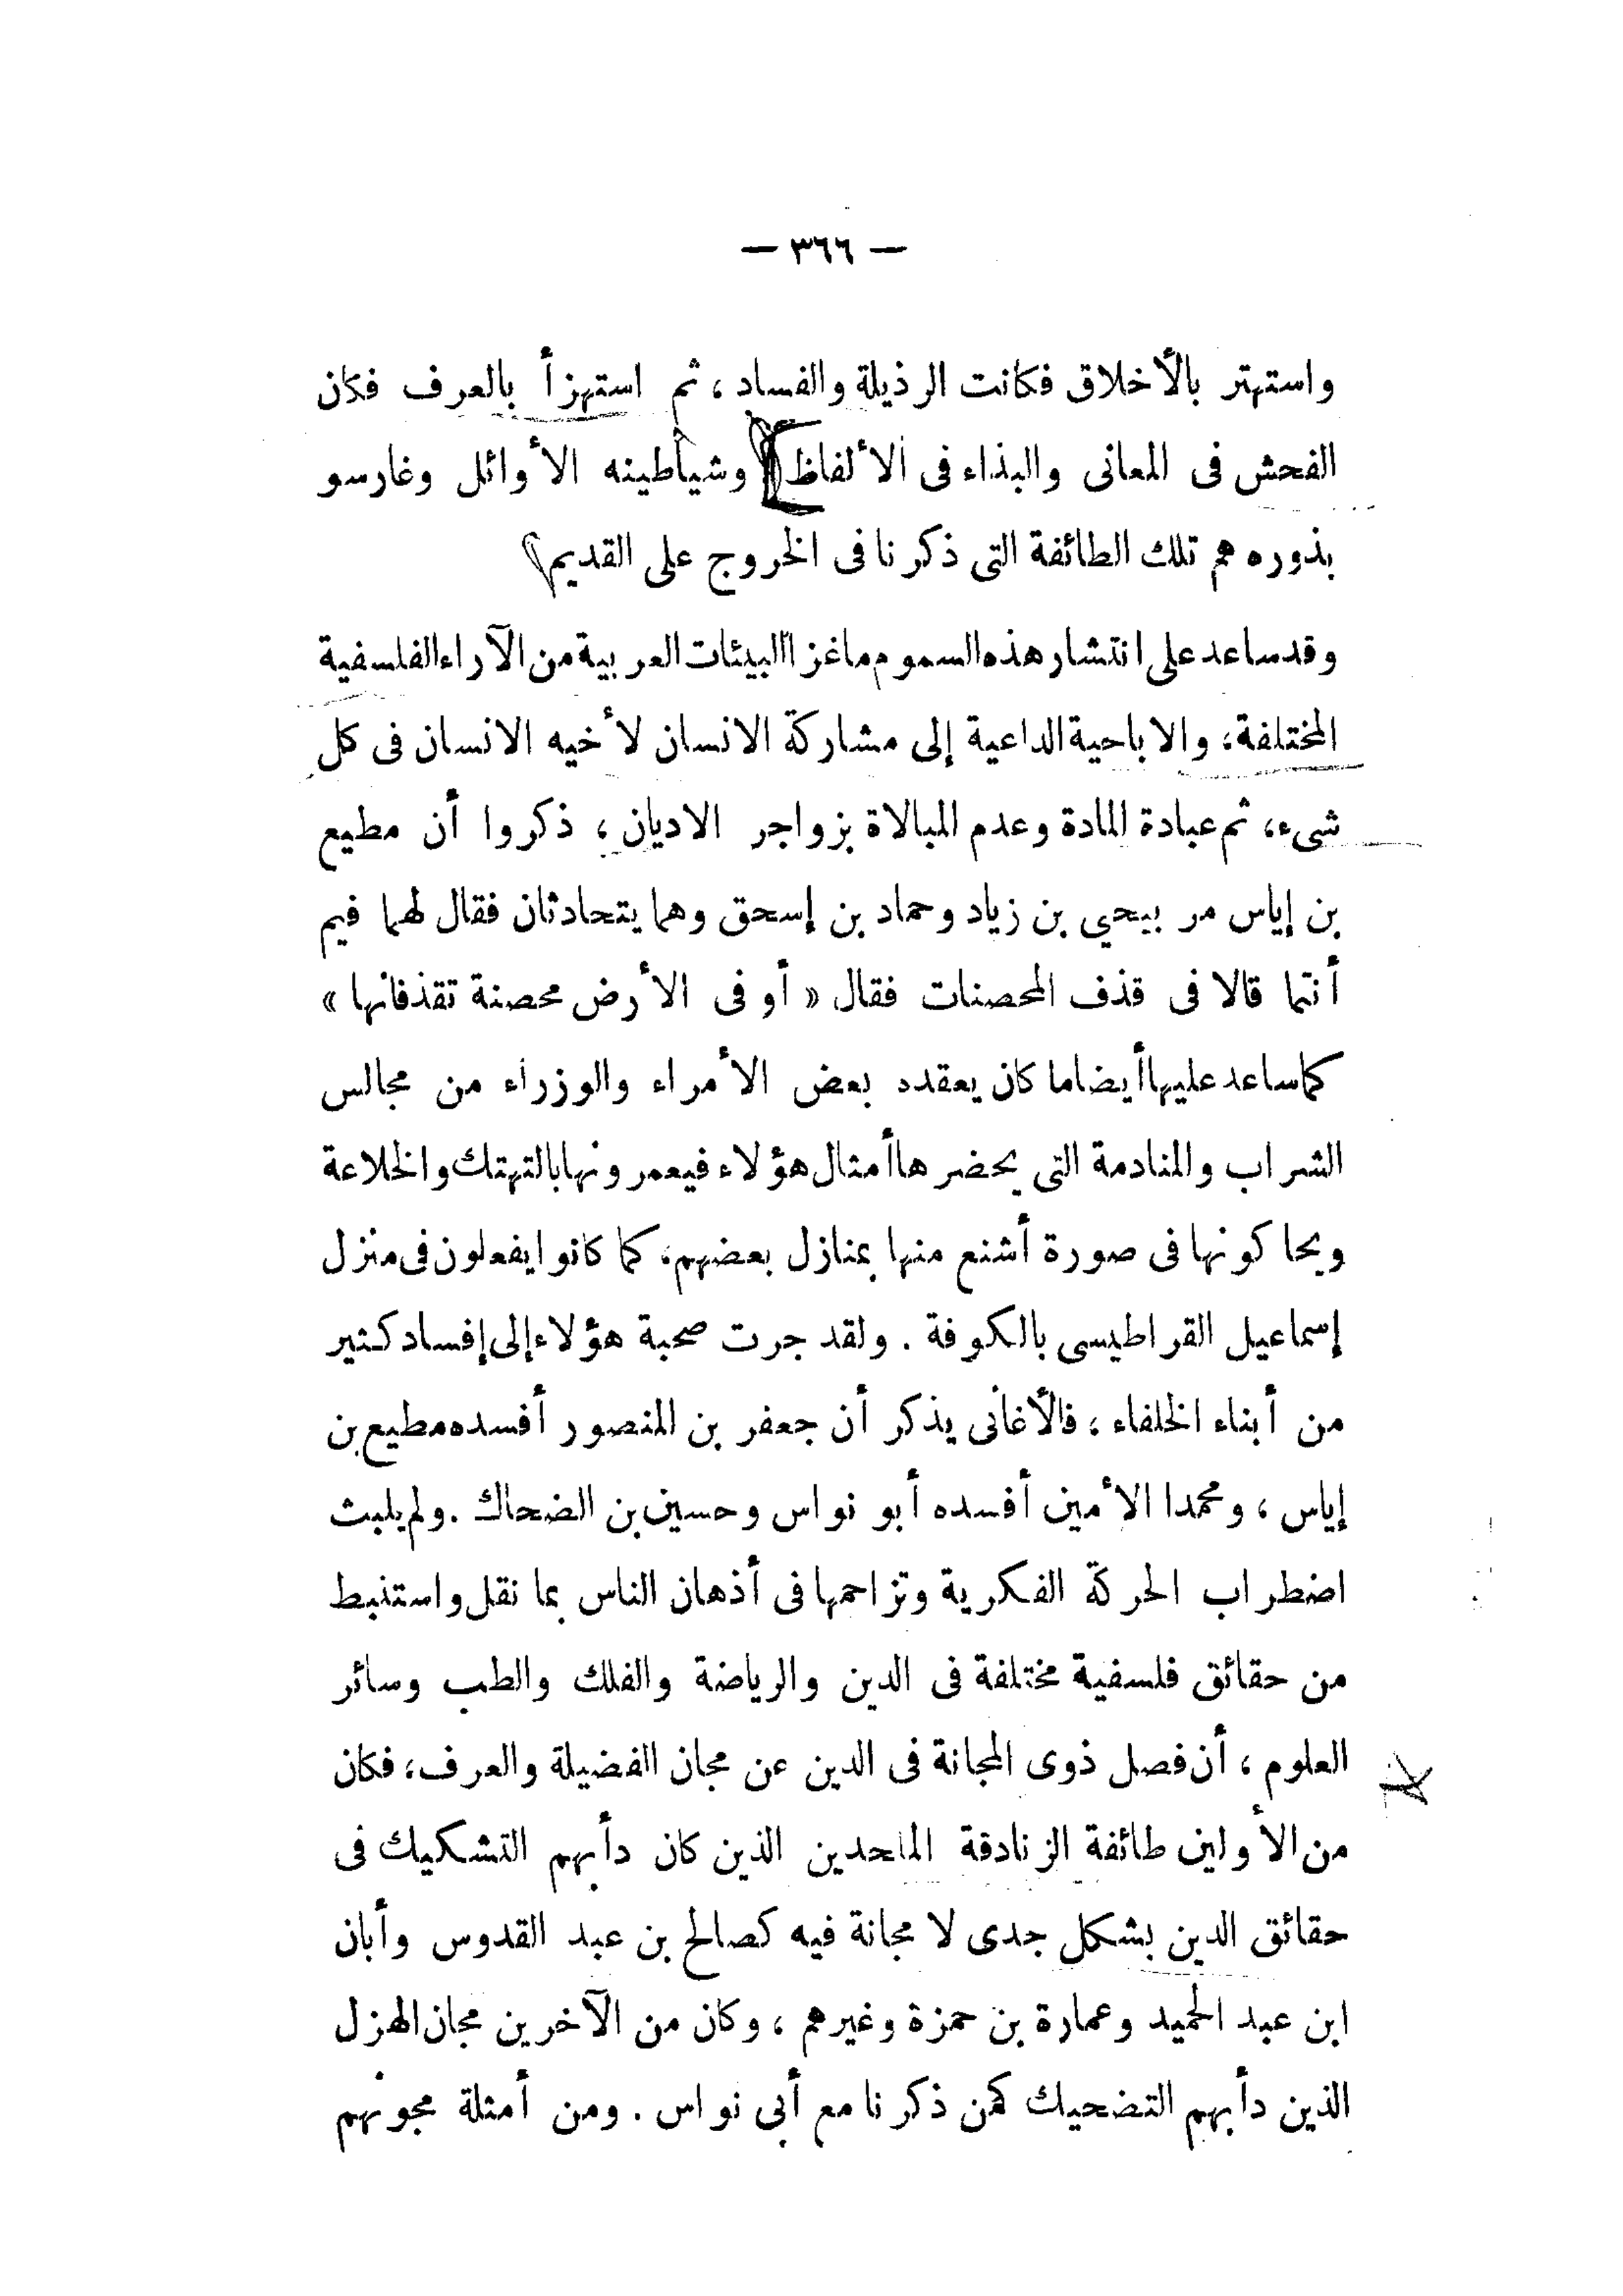 — ٣٦٦ —
واستهتر بالأخلاق فكانت الرذيلة والفساد ، ثم استهزأ بالعرف فكان
الفحش فى المعانى والبذاء فى الألفاظ وشياطينه الأوائل وغارسو
بذوره هم تلك الطائفة التى ذكرنا فى الخروج على القديم
وقد ساعد على انتشار هذه السموم ما غزا البيئات العربية من الآراء الفلسفية
المختلفة، والاباحية الداعية إلى مشاركة الانسان لأخيه الانسان فى كل
شىء، ثم عبادة المادة وعدم المبالاة بزواجر الاديان ، ذكروا أن مطيع
بن إياس مر بيحي بن زياد وحماد بن إسحق وهما يتحادثان فقال لهما فيم
أنتما قالا فى قذف المحصنات فقال « أو فى الأرض محصنة تقذفانها »
كما ساعد عليها أيضا ما كان يعقده بعض الأمراء والوزراء من مجالس
الشراب والمنادمة التى يحضرها أمثال هؤلاء فيعمرونها بالتهتك والخلاعة
ويحاكونها فى صورة أشنع منها بمنازل بعضهم، كما كانوا يفعلون فى منزل
إسماعيل القراطيسى بالكوفة . ولقد جرت صحبة هؤلاء إلى إفساد كثير
من أبناء الخلفاء ، فالأغانى يذكر أن جعفر بن المنصور أفسده مطيع بن
إياس ، ومحمدا الأمين أفسده أبو نواس وحسين بن الضحاك . ولم يلبث
اضطراب الحركة الفكرية وتزاحمها فى أذهان الناس بما نقل واستنبط
من حقائق فلسفية مختلفة فى الدين والرياضة والفلك والطب وسائر
العلوم ، أن فصل ذوى المجانة فى الدين عن مجان الفضيلة والعرف، فكان
من الأولين طائفة الزنادقة الملحدين الذين كان دأبهم التشكيك فى
حقائق الدين بشكل جدى لا مجانة فيه كصالح بن عبد القدوس وأبان
ابن عبد الحميد وعمارة بن حمزة وغيرهم ، وكان من الآخرين مجان الهزل
الذين دأبهم التضحيك كمن ذكرنا مع أبى نواس . ومن أمثلة مجونهم